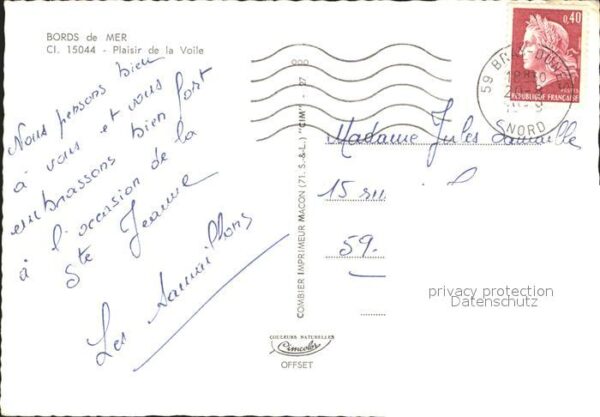 BORDS de MER
Cl. 15044 - Plaisir de la Voile
Nous pensons bien
à vous et vous
embrassons bien fort
à l'occasion de la
Ste Jeanne
Les
COMBIER IMPRIMEUR MACON (71. S.-&-L.) "CIM" - 27
COULEURS NATURELLES
Cimcolor
OFFSET
0,40
REPUBLIQUE FRANÇAISE
59 BRAY-DUNES
18H30
20-8
NORD
Madame Jules
15 ru
59.
privacy protection
Datenschutz